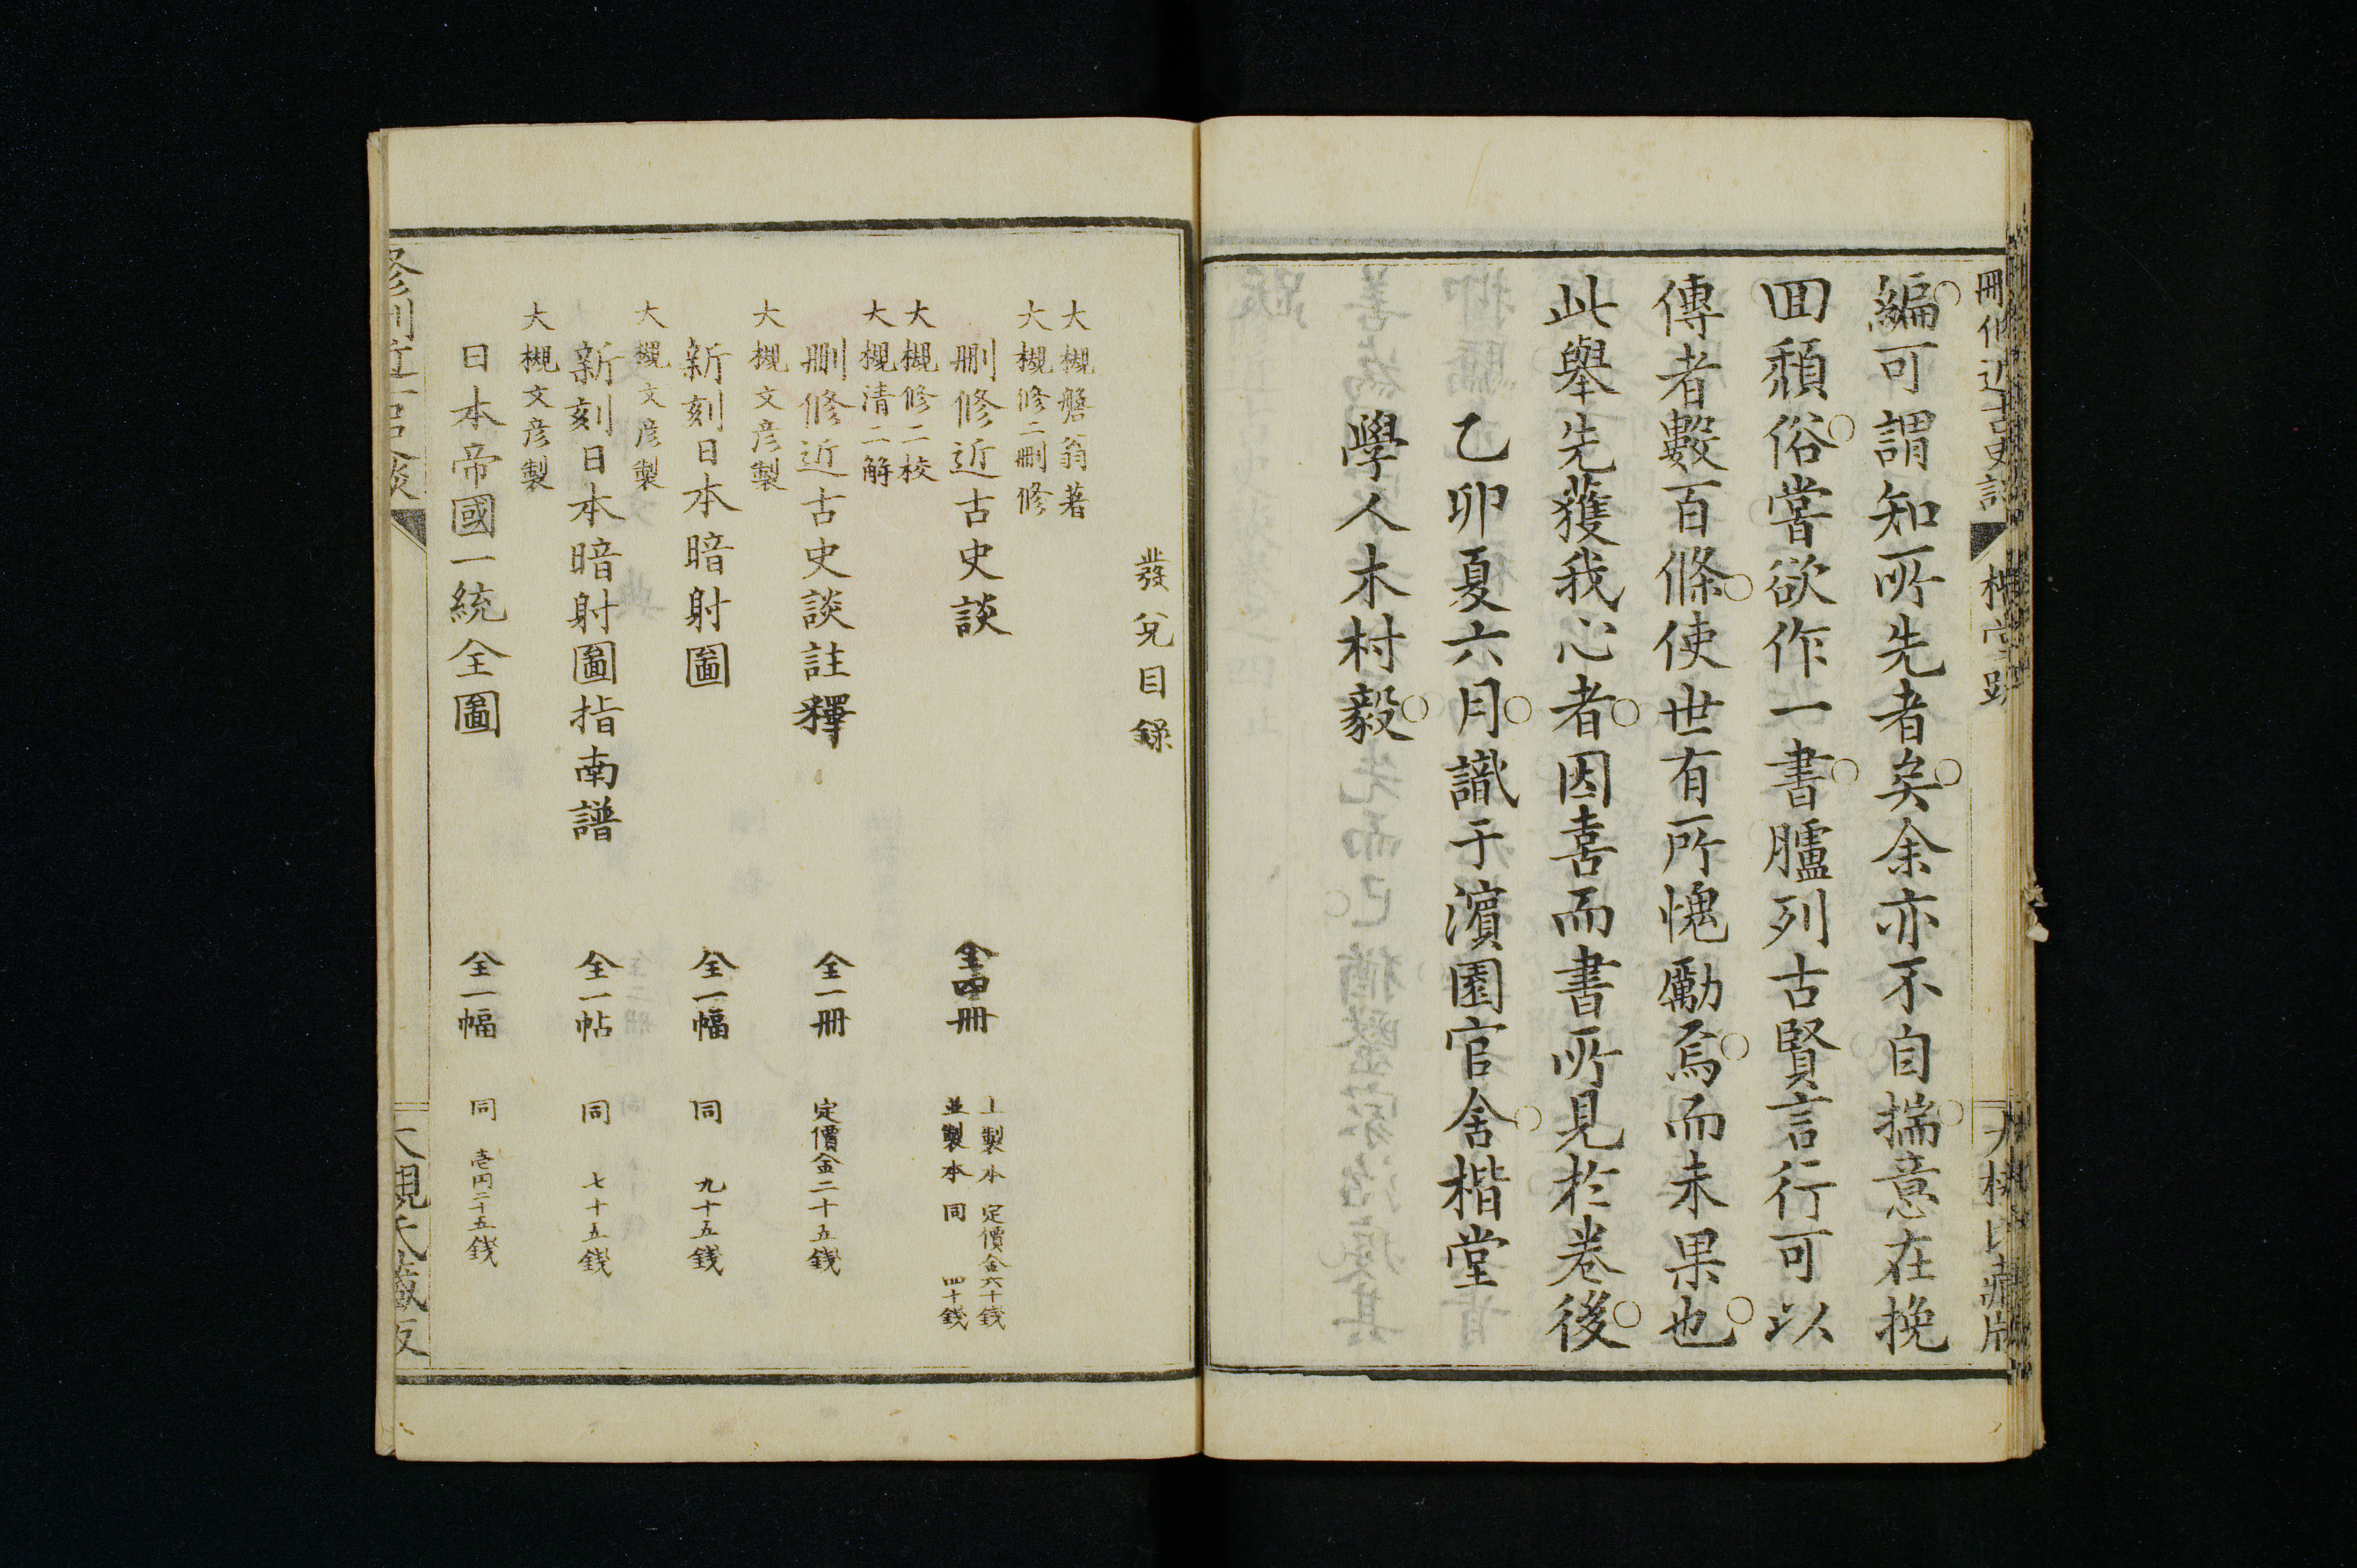 刪修近古史談
楷堂跋
大槻氏藏版
編可謂知所先者矣余亦不自揣意在挽
回頽俗嘗欲作一書臚列古賢言行可以
傳者數百條使世有所愧勵焉而未果也
此舉先獲我心者因喜而書所見於卷後
乙卯夏六月識于濱園官舍楷堂
學人木村毅
發兌目錄
大槻磐翁著
大槻修二刪修
刪修近古史談 全四册 上製本 定價金六十錢
並製本 同 四十錢
大槻修二校
大槻清二解
刪修近古史談註釋 全一册 定價金二十五錢
大槻文彦製
新刻日本暗射圖 全一幅 同 九十五錢
大槻文彦製
新刻日本暗射圖指南譜 全一帖 同 七十五錢
大槻文彦製
日本帝國一統全圖 全一幅 同 壱円二十五錢